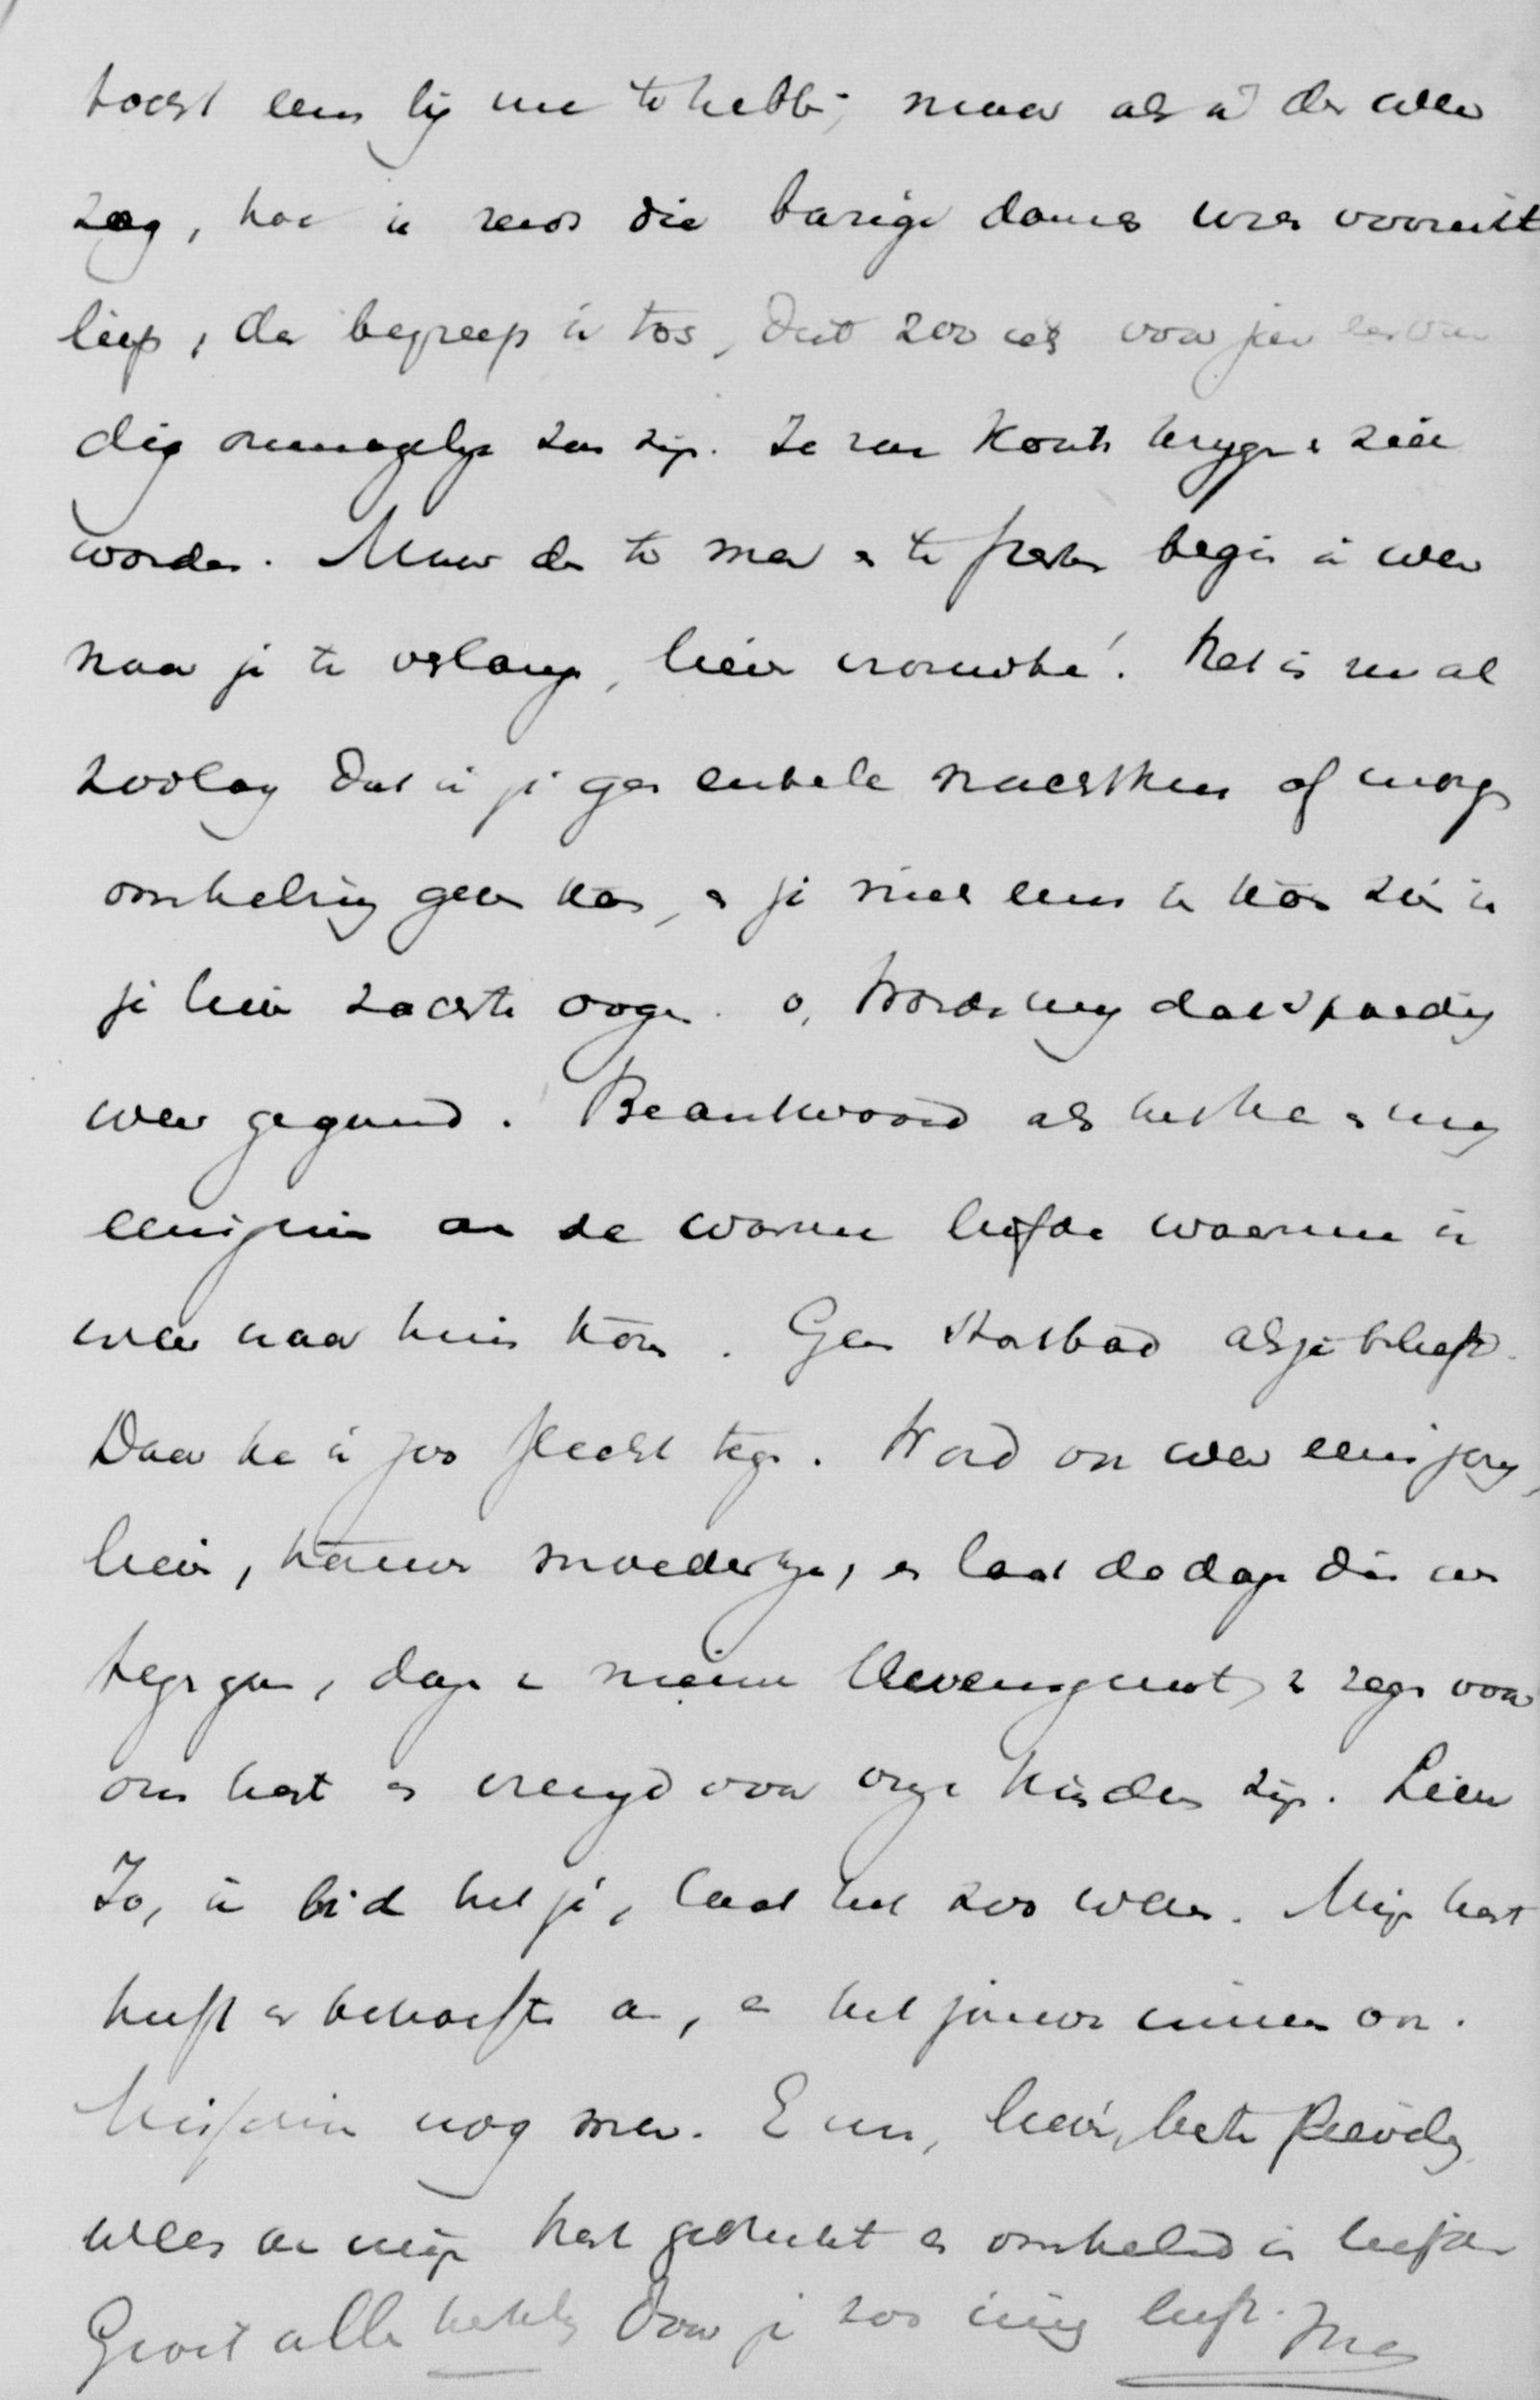 toch eens bij me te hebben; maar als ik dan weer
zag, hoe ik reeds die
liep, dan begreep ik toch, dat zoo iets voor jou
dig onmogelijk zou zijn. Je zou koorts krijgen & ziek
worden. Maar des te meer & te begin ik weer
naar je te verlangen, lieve vrouwke! Het is nu al
zoolang dat ik je geen enkele nachtkus of morgen
omhelzing geven kon, & je niet eens te kon zien in
je lieve zachte oogen. o, Worde mij dat spoedig
weer gegund. Beantwoord als het kan mij
eenigzins aan de warme liefde waarmee ik
weer naar huis kom. Geen stortbad alsjeblieft.
Daar kan ik zoo slecht tegen. Word ook weer eens jong,
lieve, trouwe moedertje, en laat de dagen die we
tegengaan, dagen van nieuw levensgenot, & zegen voor
ons hart en vreugd voor onze kinderen zijn. Lieve
Jo, ik bid het je, laat het zoo wezen. Mijn hart
heeft er behoefte aan, en het jouwe immers ook.
Misschien nog meer. En nu, lieve, beste
wees aan mijn hart gedrukt en omhelsd in liefde
Groet alle hartelijk door je zoo innig liefh.